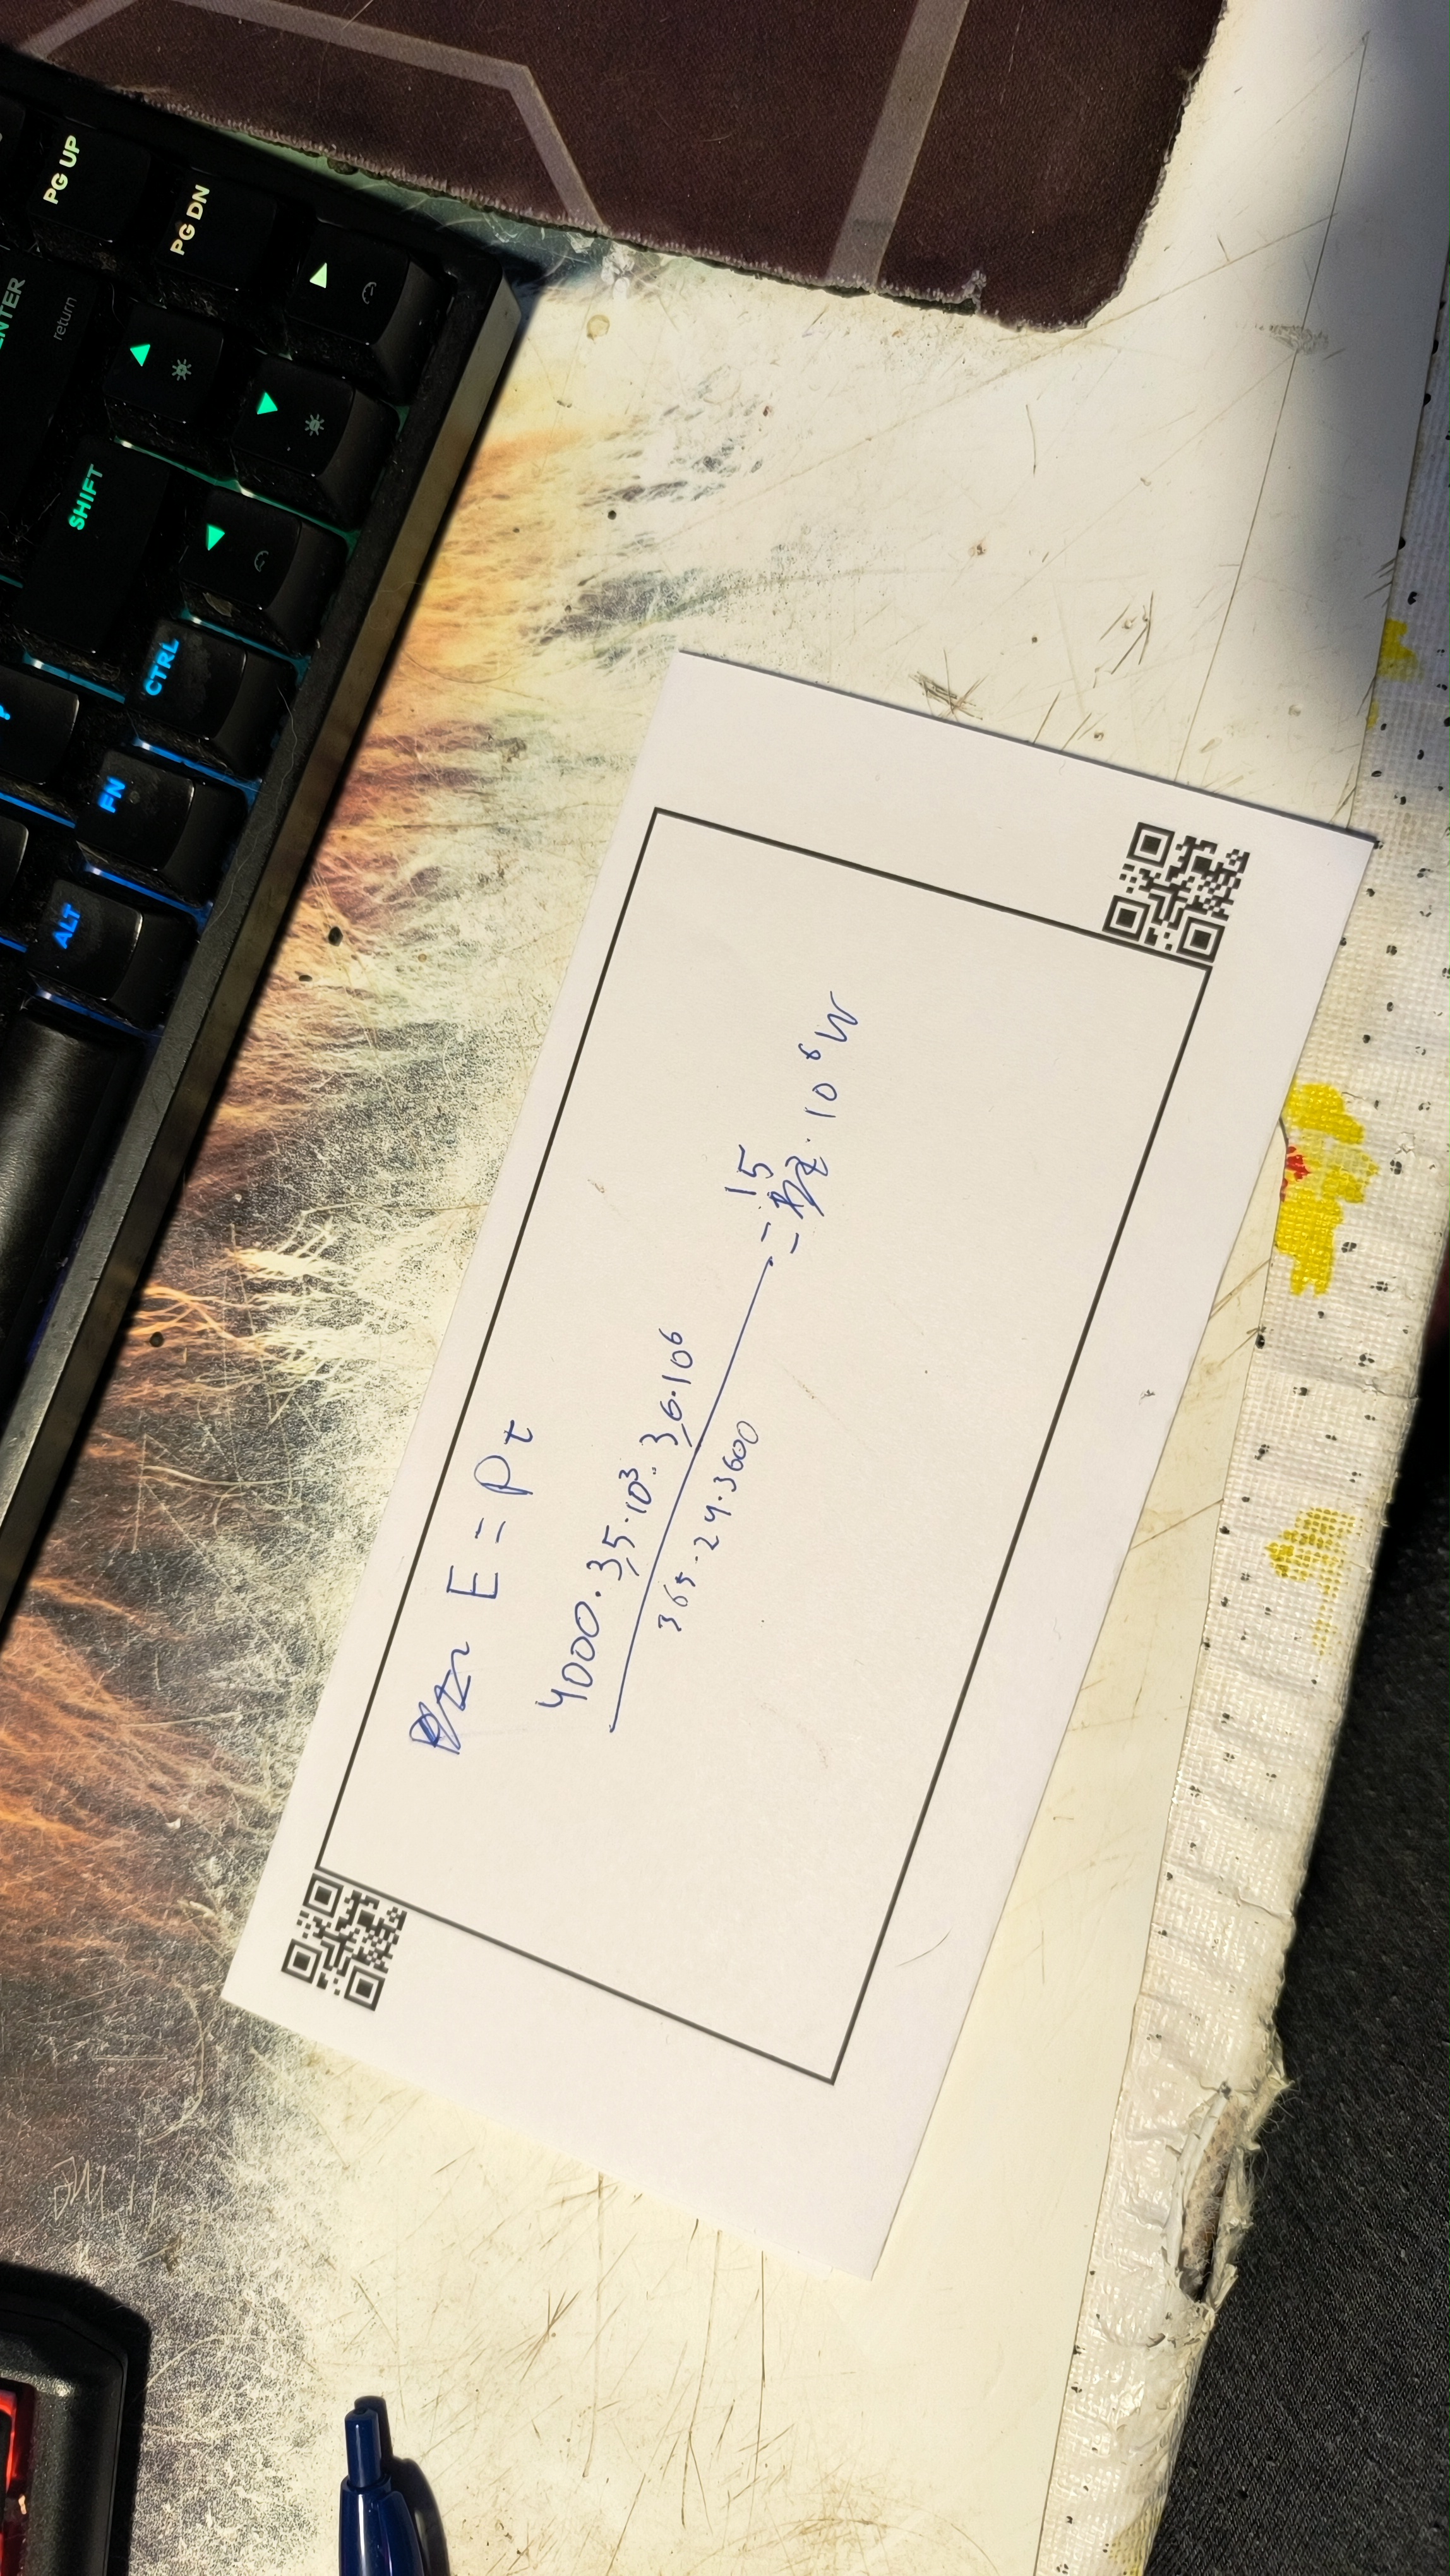 ENTER
return
PG UP
ALT
SHIFT
FN
CTRL
PG DN
E = Pt
4000 · 3,5 · 10³ · 3,6 · 10⁶
365 · 24 · 3600
= 15 · 10⁶ W